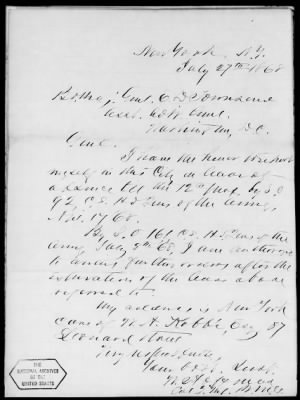 New York, N.Y.
July 27th 1868
Genl. E D Townsend
Asst. Adjt. Genl.
Washington, D.C.
Genl.
I have the honor to report
myself in this City on leave of
absence till the 12th prox. by S.O.
92, C.S. H.Q. of the Army,
1868.
By S.O. 161 C.S. H.Q. of the
Army, July 68, I am authorized
to await further orders after the
expiration of the leave above
referred to.
My address is New York
care of Kobbé, Esq 87
Leonard Street
Very respectfully,
Your Obt. Servt.
THE
NATIONAL ARCHIVES
OF THE
UNITED STATES